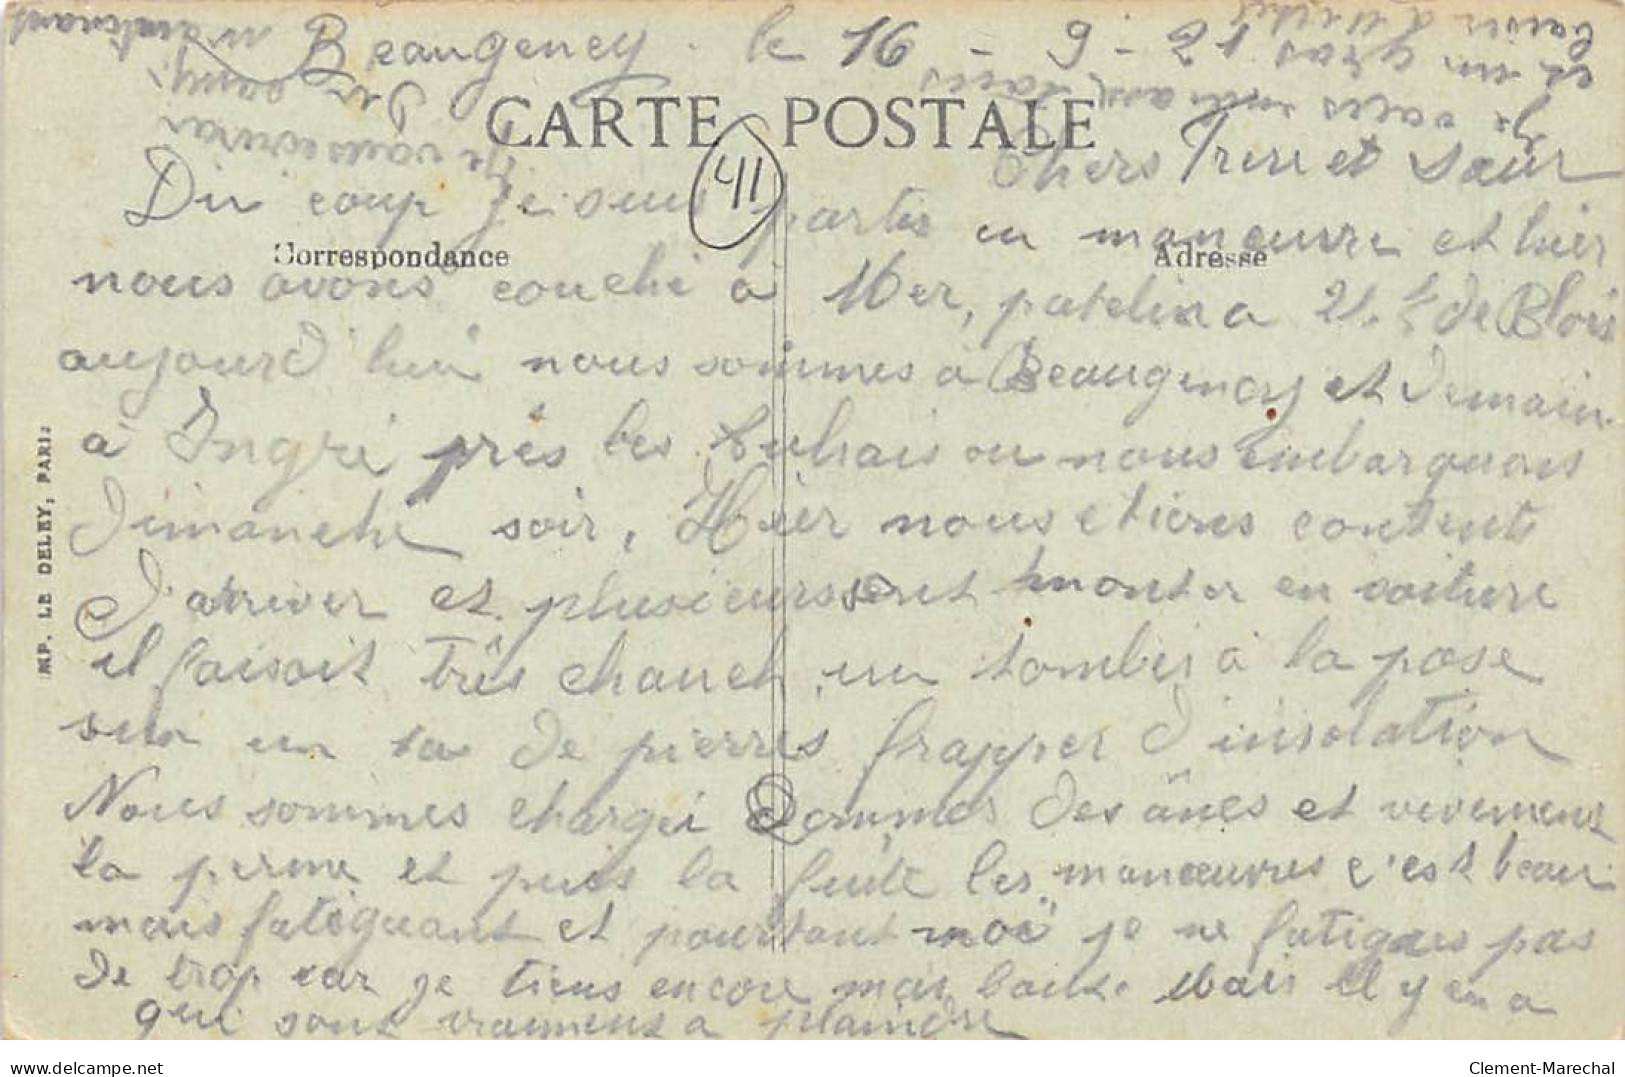 Beaugency. le 16 - 9 - 21
CARTE POSTALE
41
Chers Frere et Sœur
Du coup je suis partis en manœuvre et hier
Correspondance
Adresse
nous avons couché a Mer, patelin a 21. de Blois
aujourd'hui nous sommes a Beaugency et demain
à Ingré près les ou nous embarquons
dimanche soir, Hier nous etions contents
d'arriver et plusieurs sont monter en voiture
il faisait très chaud, un tomber à la pose
sur un ta de pierres frapper d'insolation
Nous sommes chargé comme des ânes et vivement
la perme et puis la les manœuvres c'est beau
mais fatiguant et pourtant moi je ne fatigues pas
de trop car je tiens encore ma Mais il y en a
qui sont vraiment a plaindre
je vous ecrirai
du camp
maintenant
je vous
et un gros
baiser
IMP. LE DELEY, PARIS
www.delcampe.net
Clement-Marechal